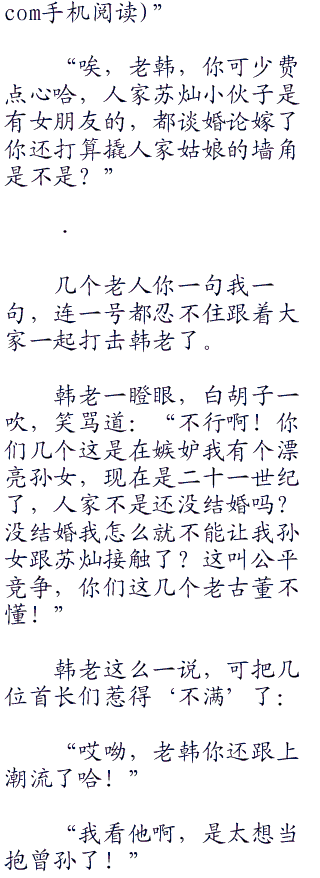 com手机阅读)”
“唉，老韩，你可少费
点心哈，人家苏灿小伙子是
有女朋友的，都谈婚论嫁了
你还打算撬人家姑娘的墙角
是不是？”
.
几个老人你一句我一
句，连一号都忍不住跟着大
家一起打击韩老了。
韩老一瞪眼，白胡子一
吹，笑骂道：“不行啊！你
们几个这是在嫉妒我有个漂
亮孙女，现在是二十一世纪
了，人家不是还没结婚吗？
没结婚我怎么就不能让我孙
女跟苏灿接触了？这叫公平
竞争，你们这几个老古董不
懂！”
韩老这么一说，可把几
位首长们惹得‘不满’了：
“哎呦，老韩你还跟上
潮流了哈！”
“我看他啊，是太想当
抱曾孙了！”